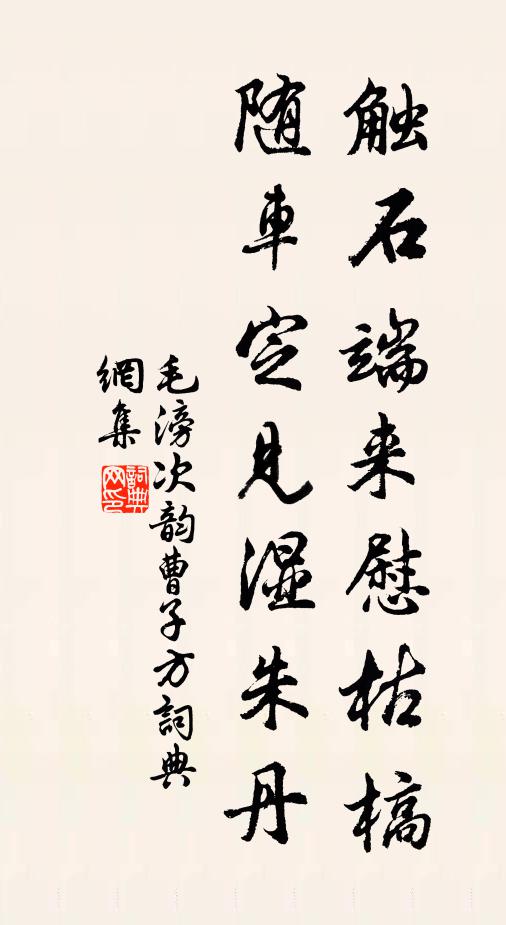 触石端来慰枯槁
随車定见湿朱丹
毛滂次韵曹子方詞典
網集
詞典網印